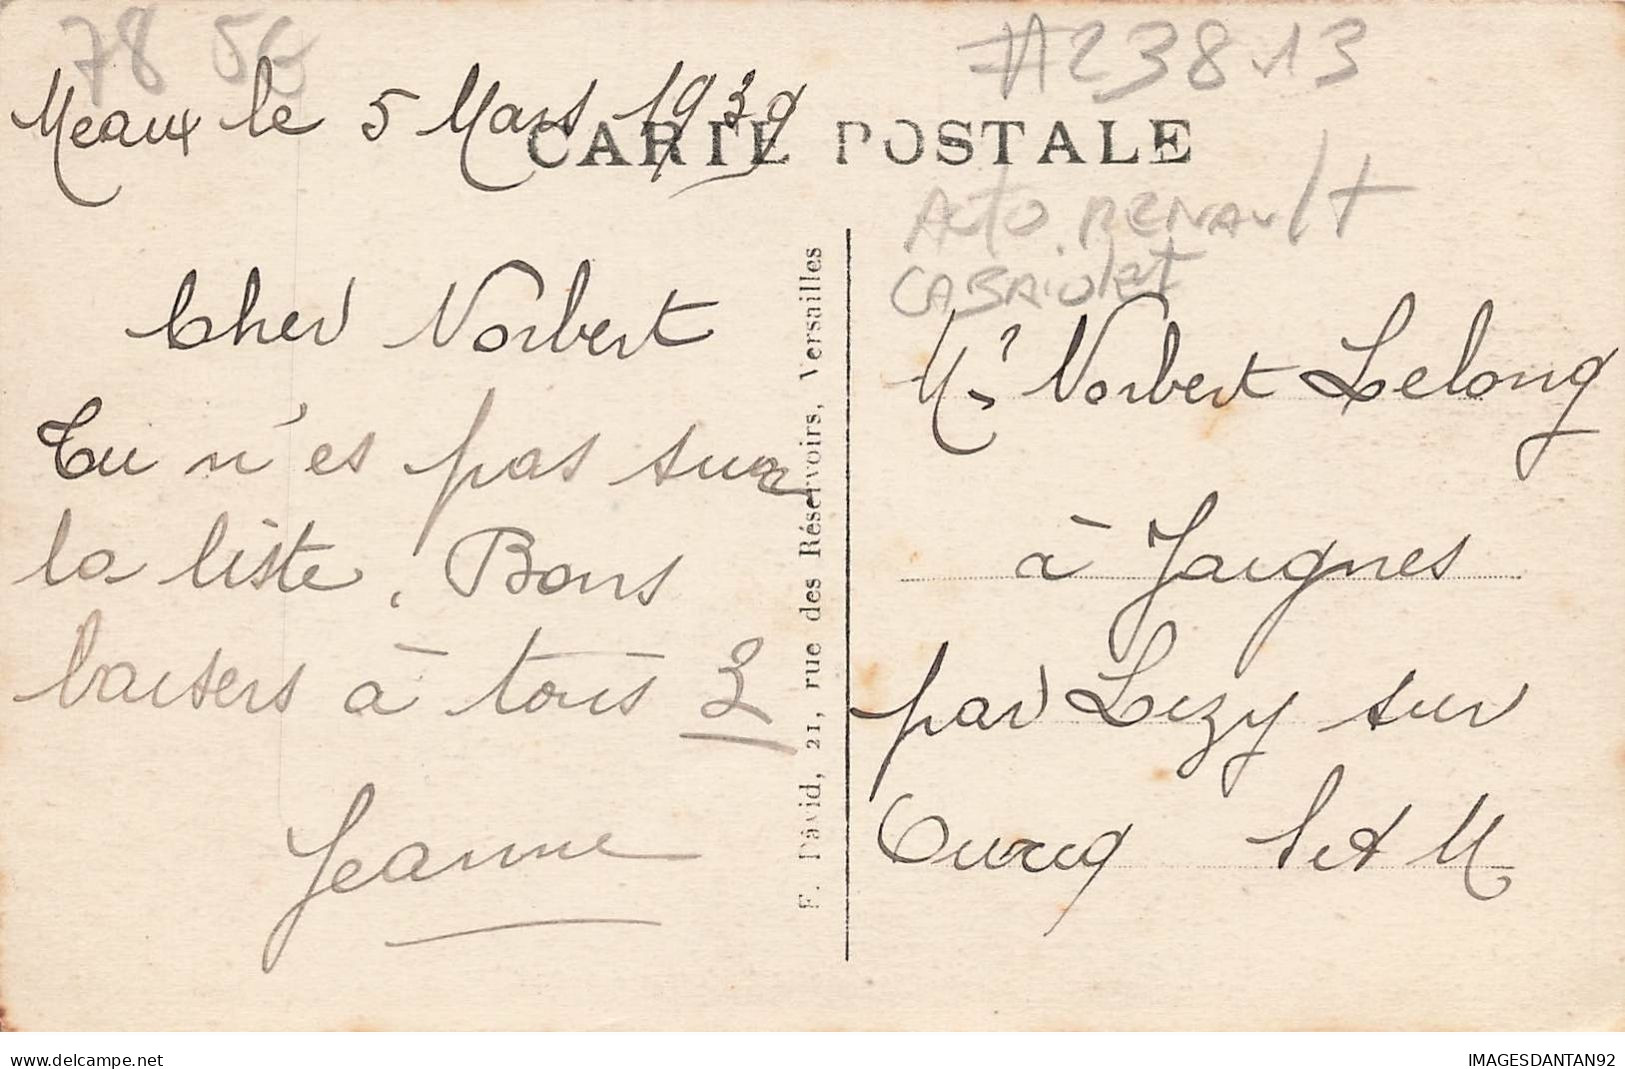 78 50
#23813
Meaux le 5 Mars 1939
CARTE POSTALE
AUTO RENAULT
CABRIOLET
Cher Norbert
Tu n'es pas sur
la liste. Bons
baisers à tous 3
Jeanne
F. David, 21, rue des Réservoirs, Versailles
Mr Norbert Lelong
à Jaignes
par Lizy sur
Ourcq S et M
www.delcampe.net
IMAGESDANTAN92